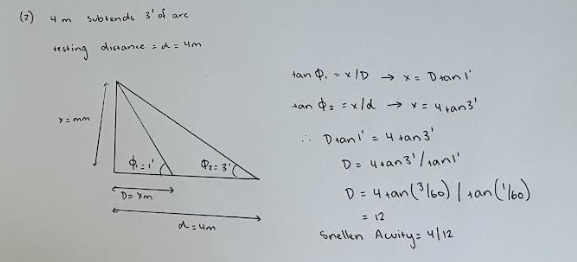 (2) 4 m subtends 3' of arc
testing distance = d = 4m
x = mm
ϕ₁ = 1'
ϕ₂ = 3'
D = Xm
d = 4m
tan ϕ₁ = x/D → x = Dtan1'
tan ϕ₂ = x/d → x = 4tan3'
∴ Dtan1' = 4tan3'
D = 4tan3'/tan1'
D = 4tan(3/60) / tan(1/60)
= 12
Snellen Acuity = 4/12